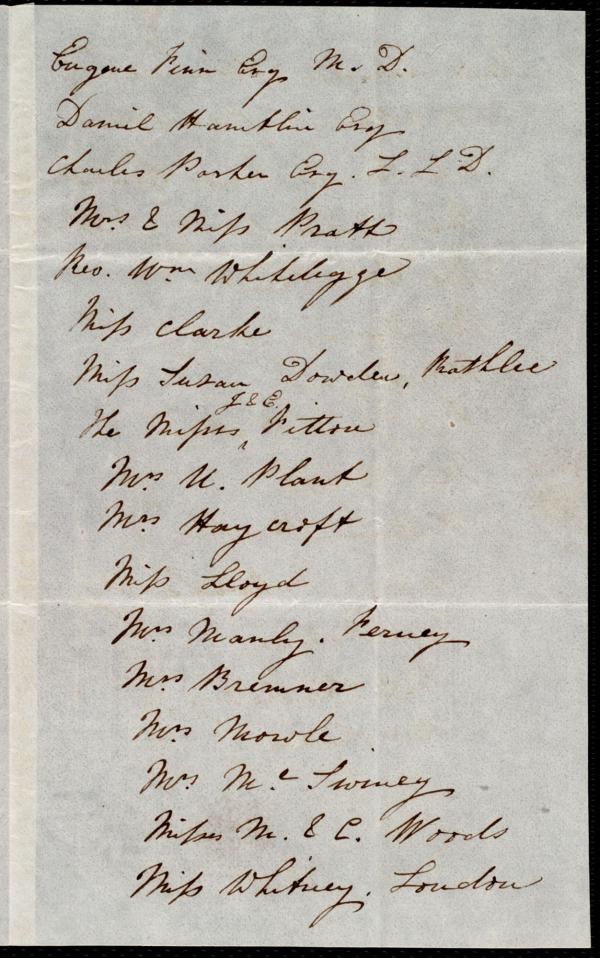 Eugene Finn Esq M. D.
Daniel Hamblin Esq
Charles Parker Esq. L. L D.
Mrs & Miss Pratt
Rev. Wm Whitelegge
Miss Clarke
Miss Susan Dowden, Rathlee
The Misses J & E. Fitton
Mrs U. Plant
Mrs Haycroft
Miss Lloyd
Mrs Manly. Ferney
Mrs Bremner
Mrs Mowle
Mrs Mc Swiney
Misses M. & C. Woods
Miss Whitney. London